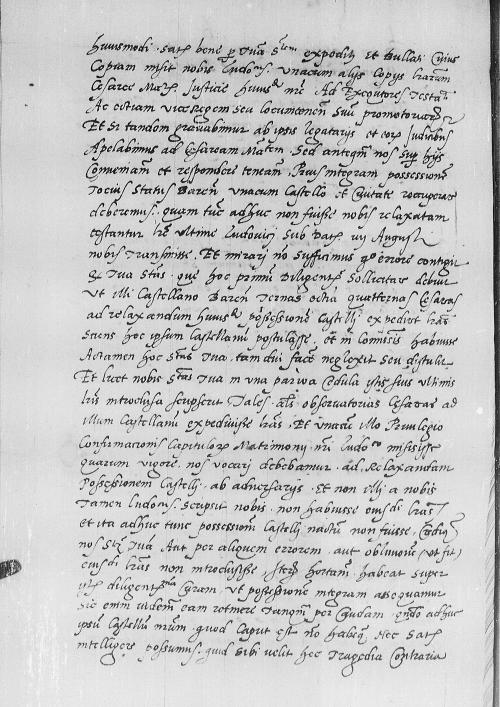 huiusmodi. Satis bene per Tuam S. tem expediti Et Bullati Cuius
Copiam misit nobis Ludovicus. unacum aliis Copiis literarum
Cesaree Maiestatis Justicie huiusque nre Ad Executores Testa
Ac etiam vicesregem seu locumtenentem Suum promotoriarum
Et Si tandem gravabimur ab ipsis legatariis et eorum Judicibus
Apelabimus ad Cesaream Matem. Sed antequam nos super hiis
Conveniamur et respondere teneamur, Prius integram possessionem
Totius Status Baren unacum Castello et Civitate recuperare
deberemus. quem tunc adhuc non fuisse nobis relaxatam
testantur lre ultime Ludovici sub Dat. vii Augusti
nobis Transmisse. Et mirari non sufficimus quo errore contigit
Tua Stas. que hoc primum Diligenter Sollicitare debuit
Ut illi Castellano Baren Ternas octia quaternas Cesareas
ad relaxandum huiusque possessionem Castelli expediret lras
Sciens hoc ipsum Castellanum postulasse, et in Comissis habuisse
Attamen hoc Stas Tua, tam diu facere neglexit seu distulit
Et licet nobis Stas Tua in una parva Cedula istis suis ultimis
lris introclusa scripserit Tales. alias observatorias Cesareas ad
illum Castellanum expedivisse lras, Et unacum illo Privilegio
Confirmacionis Capitulorum Matrimonii nri Ludovico misisse
quarum vigore, nos vocari debebamur. ad Relaxandam
Possessionem Castelli. ab adversariis. Et non illi a nobis
Tamen Ludovicus. Scripsit nobis. non habuisse eiusdem lras
et ita adhuc tunc possessionem Castelli nactum non fuisse, Credimus
nos Stem Tuam Aut per aliquem errorem aut oblivionem (ut fit)
eiusdem lras non introclusisse, iterum hortamur, habeat super
diligentissimam Curam, Ut possessionem integram assequamur
Sic enim videmur eam retinere Tanquam per Caudam. quando adhuc
ipsum Castellum nrum. quod Caput est non habemus Nec Satis
intelligere possumus. quid sibi velit hec Tragedia Contraria